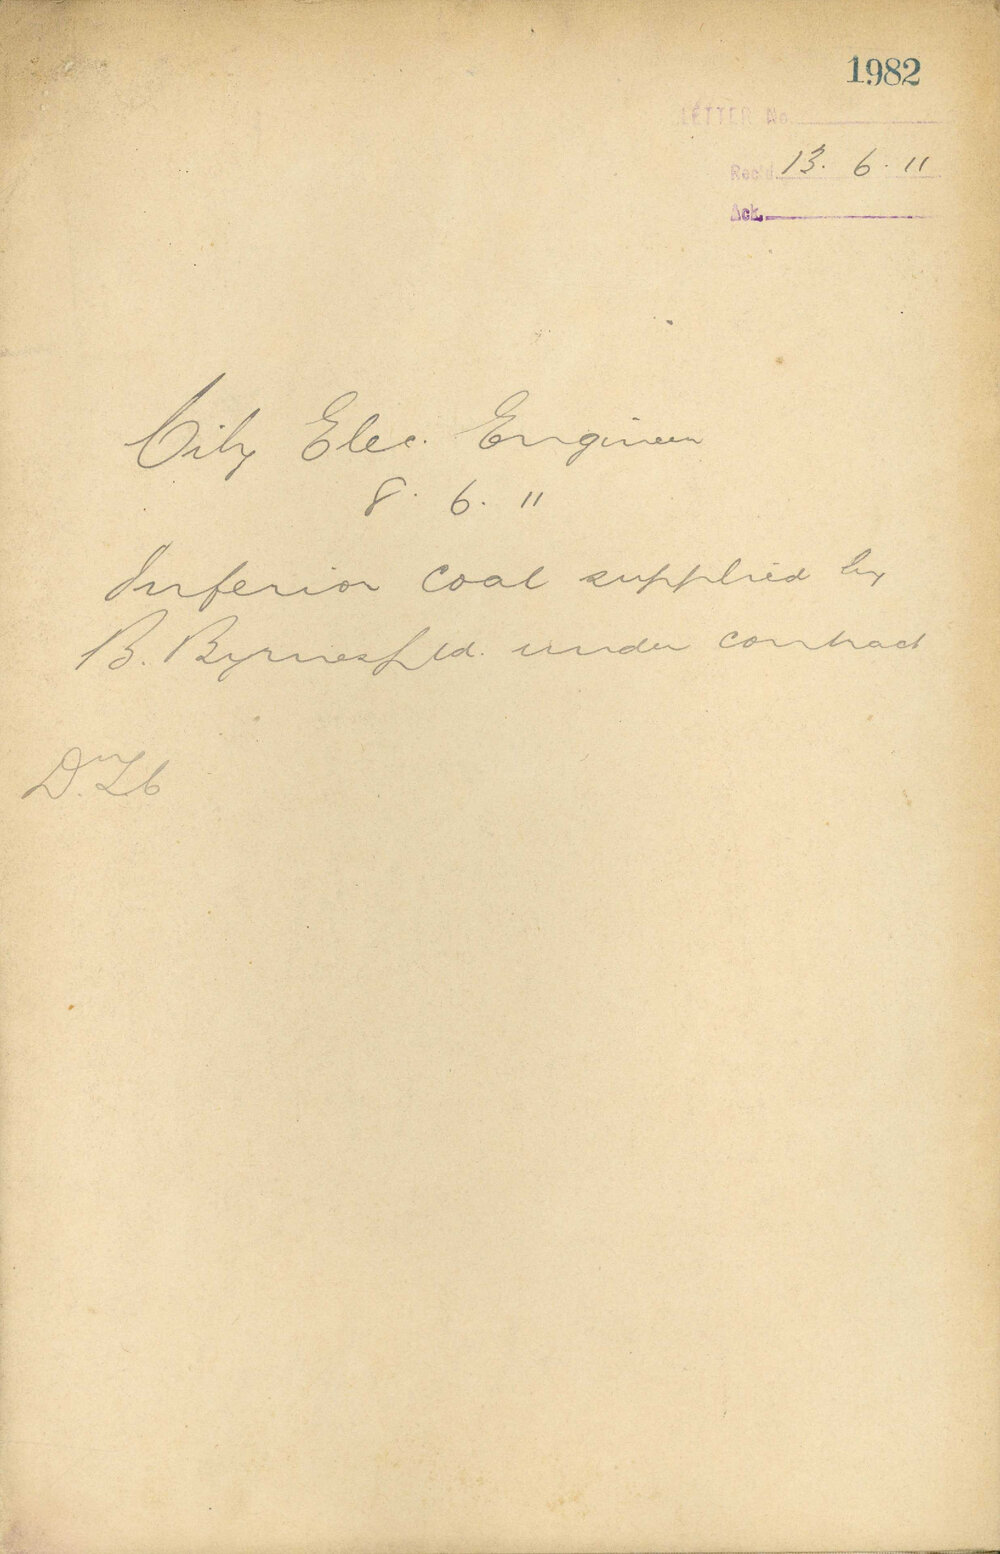 1982
LETTER No.
Rec'd. 13. 6. 11
Ack.
City Elec. Engineer
8. 6. 11
Inferior coal supplied by
B. Byrnes Ltd. under contract